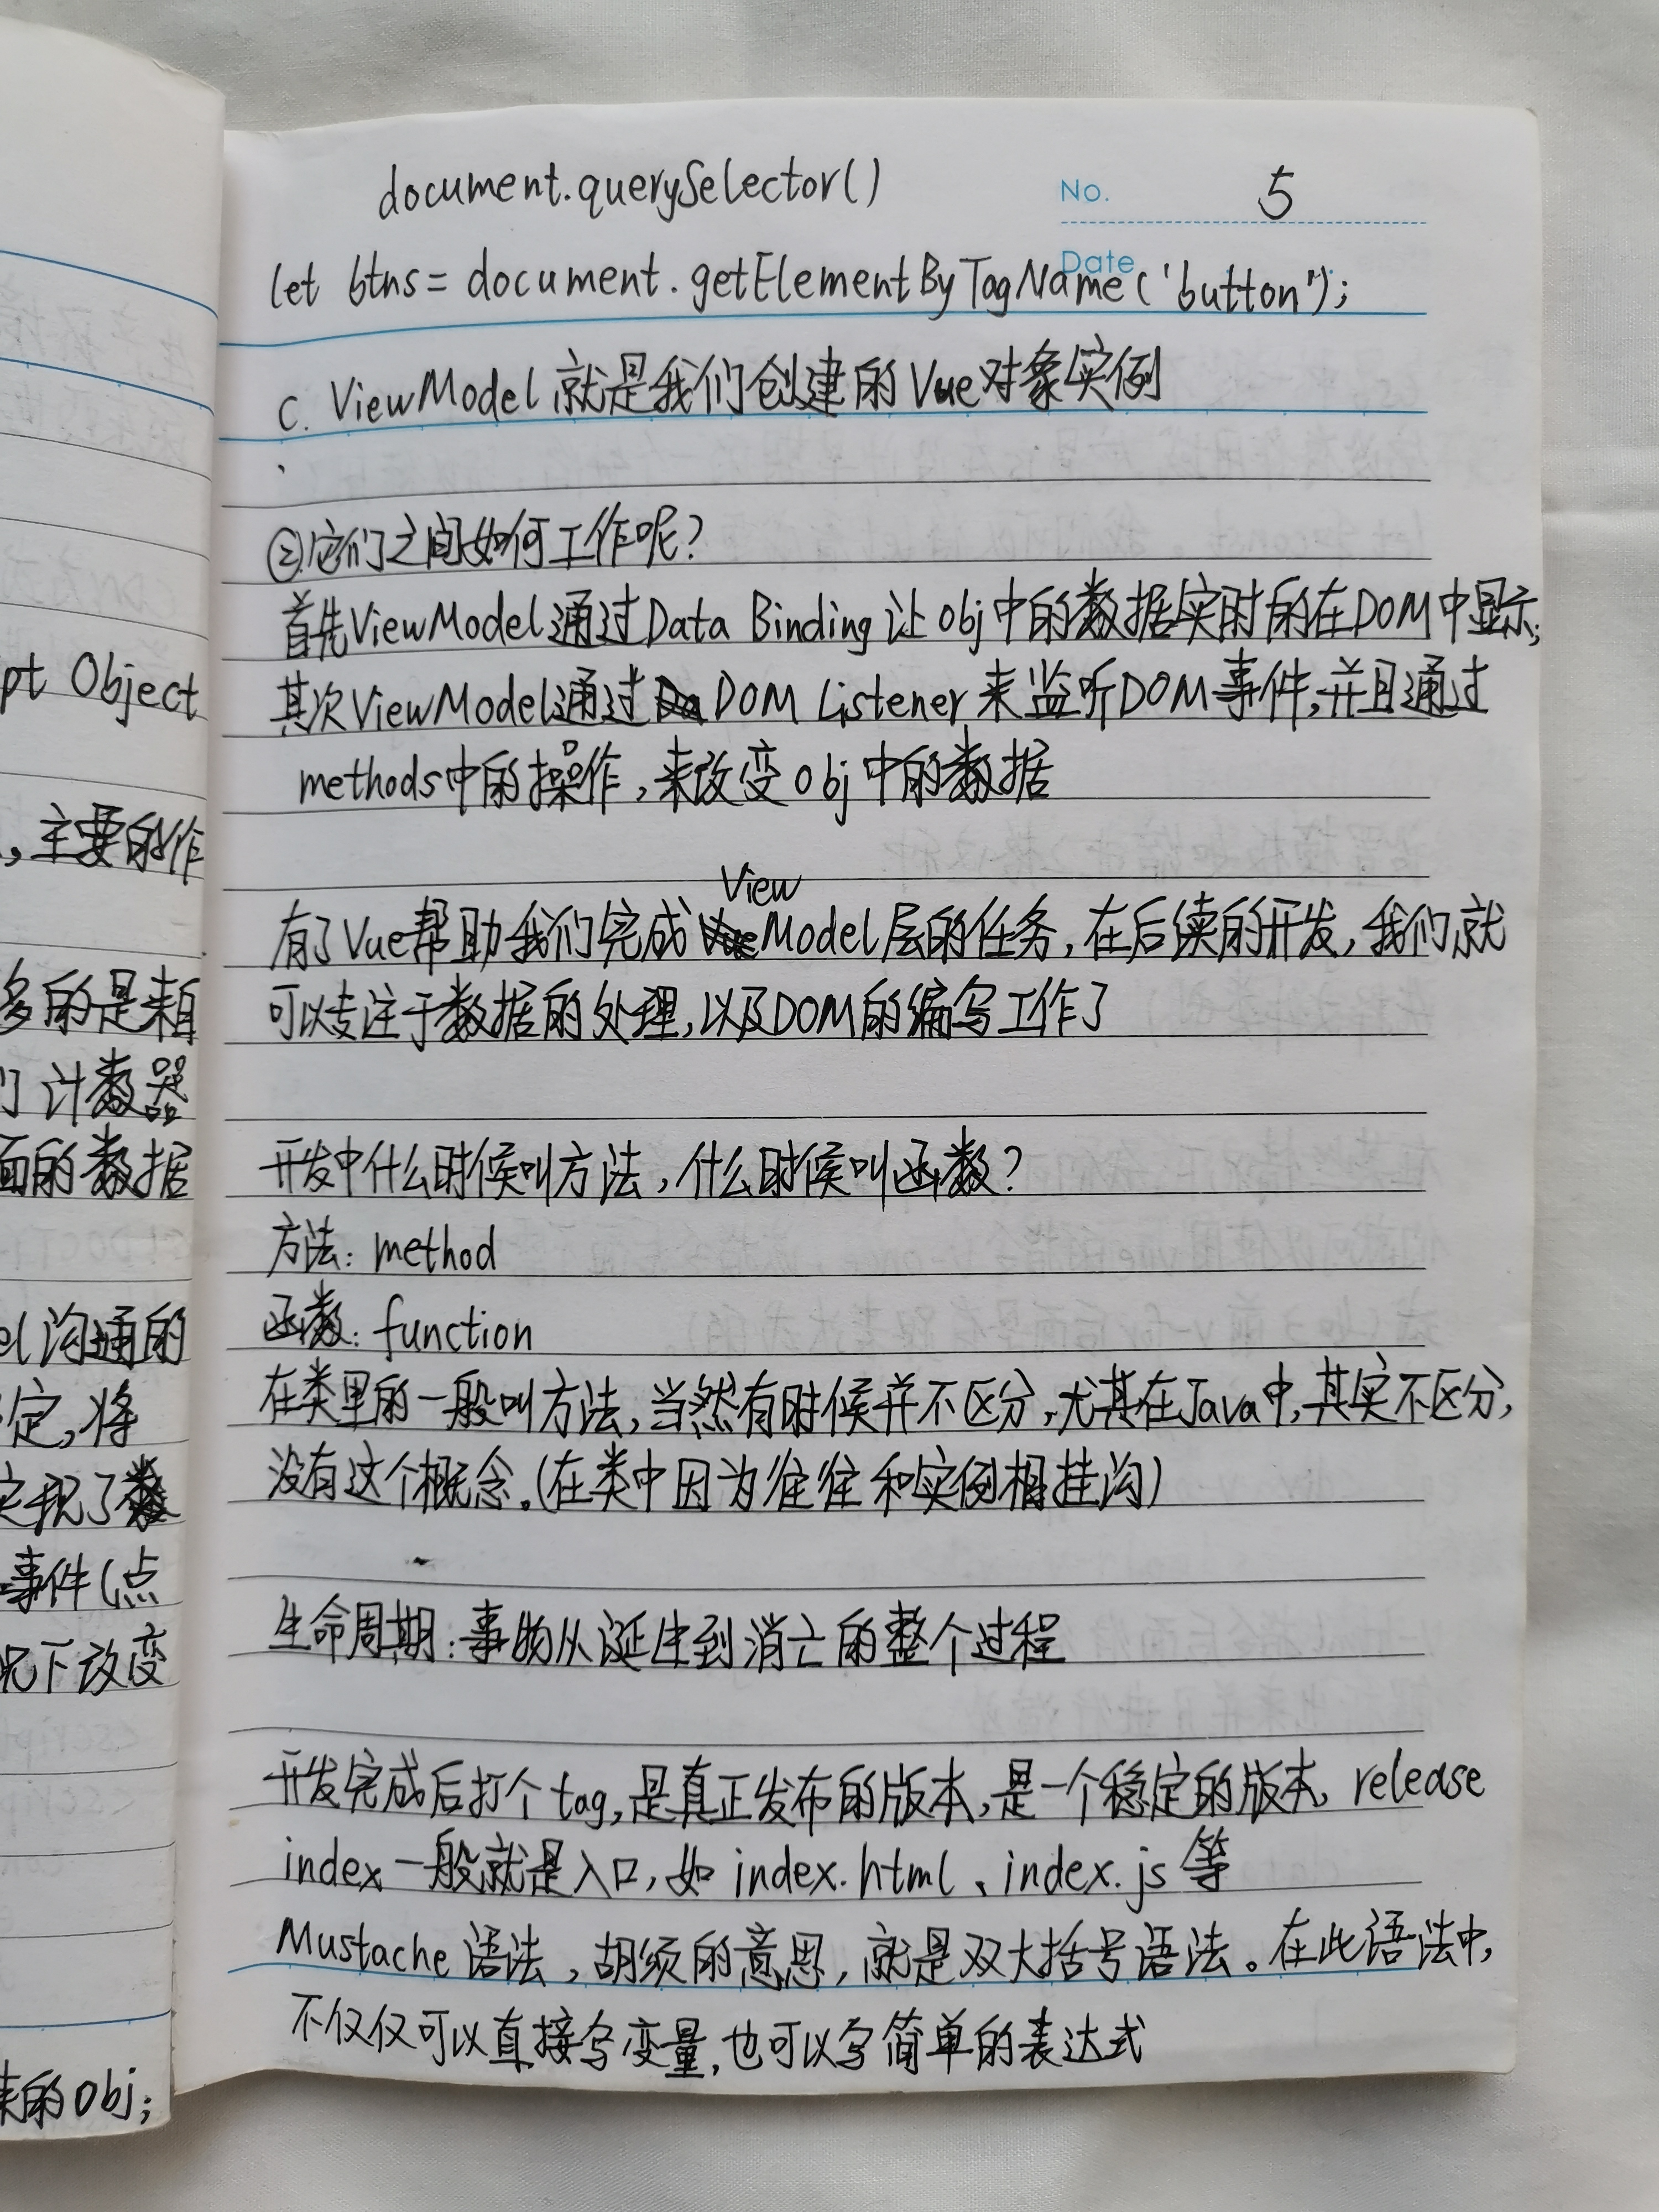 pt Object
,主要的作
多的是来自
们 计数器
面的数据
el 沟通的
定,将
实现了数
事件(点
况下改变
来的obj;
document.querySelector()
No. 5
Date
let btns = document.getElementByTagName('button');
c. ViewModel 就是我们创建的Vue对象实例
②它们之间如何工作呢?
首先ViewModel通过Data Binding 让 obj中的数据实时的在DOM中显示;
其次ViewModel通过DOM Listener来监听DOM事件,并且通过
methods中的操作,来改变obj中的数据
有了Vue帮助我们完成ViewModel层的任务,在后续的开发,我们就
可以专注于数据的处理,以及DOM的编写工作了
开发中什么时候叫方法,什么时候叫函数?
方法: method
函数: function
在类里的一般叫方法,当然有时候并不区分,尤其在Java中,其实不区分,
没有这个概念。(在类中因为往往和实例相挂沟)
生命周期:事物从诞生到消亡的整个过程
开发完成后打个tag,是真正发布的版本,是一个稳定的版本, release
index一般就是入口,如 index.html、index.js等
Mustache语法,胡须的意思,就是双大括号语法。在此语法中,
不仅仅可以直接写变量,也可以写简单的表达式